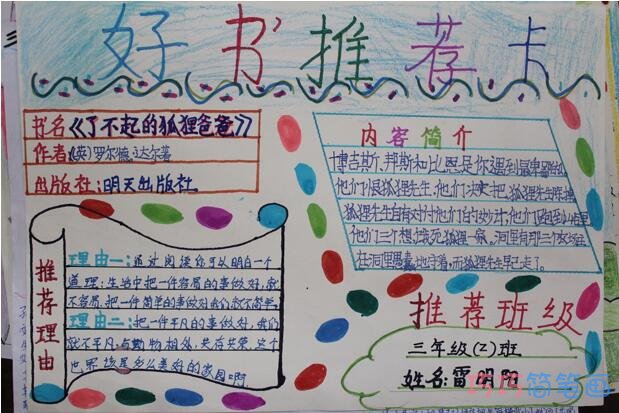 好书推荐卡
书名《了不起的狐狸爸爸》
作者:(英)罗尔德.达尔著
出版社:明天出版社
内容简介
博吉斯、邦斯和比恩是你遇到最卑鄙的
他们恨狐狸先生,他们决定把狐狸先生除掉
狐狸先生自有对付他们的办法,他们
他们三个想饿死狐狸一家。洞里有那三个
在洞里愚蠢地守着,而狐狸先生早已走了。
推荐理由
理由一:通过阅读你可以明白一个
道理:生活中把一件容易的事做好,就
不容易,把一件简单的事做好我们就不简单,
理由二:把一件平凡的事做好,我们
就不平凡,与动物相处,共存共荣,这个
世界该是多么美好的家园啊
推荐班级
三年级(2)班
姓名:雷明阳
简笔画